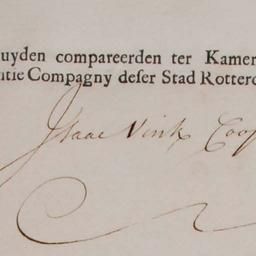 uyden compareerden ter Kamer
tie Compagny deſer Stad Rotterd
Isaac Vink Coop